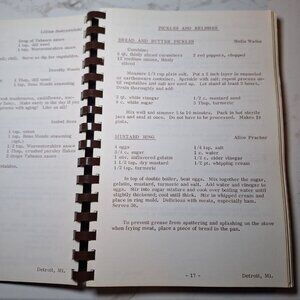 Lillian
Drop of Tabasco sauce
1 tsp. dill weed
1 tsp. Worcestershire sauce
chill. Serve as dip for vegetables.
Dorothy
1 Tbsp. dill weed
1 tsp.
Make early in the day if you
Susie
1 tsp. onion
1 tsp. Beau Monde seasoning
1 tsp. Worcestershire sauce
1 Tbsp. crushed parsley flakes
2 drops Tabasco sauce
Detroit, MI.
PICKLES AND RELISHES
BREAD AND BUTTER PICKLES
Combine:
1 qt. thinly sliced cucumbers
2 red peppers, chopped
12 medium onions, thinly
sliced
Measure 1/2 cup plain salt. Put a 2 inch layer in enameled
or earthenware container. Sprinkle with salt, repeat layers of
Drain thoroughly and add
9 c. white sugar
3 Tbsp. turmeric
Mix well and simmer 5 to 10 minutes. Pack in hot sterile
jars and seal at once. Do not have to be processed. Makes 14
pints.
MUSTARD RING
Alice Pracher
4 eggs
3/4 c. sugar
1 env. unflavored gelatin
1 1/2 tsp. dry mustard
1/2 tsp. turmeric
1/4 tsp. salt
1 c. water
1/2 c. cider vinegar
1/2 pt. whipping cream
In top of double boiler, beat eggs. Mix together the sugar,
gelatin, mustard, turmeric and salt. Add water and vinegar to
eggs. Stir into sugar mixture and cook over boiling water until
slightly thickened; cool until thick. Stir in whipped cream and
place in ring mold. Delicious with meats, especially ham.
Serves 50.
To prevent grease from spattering and splashing on the stove
when frying meat, place a piece of bread in the pan.
- 17 -
Detroit, MI.